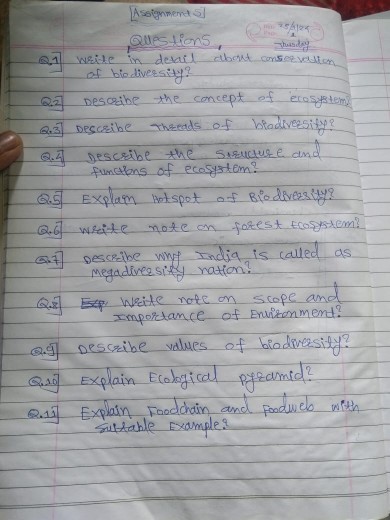 Assignments
Questions
Thursday
Q.1] Write in detail about conservation
of biodiversity?
Q.2] Describe the concept of ecosystem?
Q.3] Describe Threats of biodiversity?
Q.4] Describe the structure and
functions of ecosystem?
Q.5] Explain hotspot of Biodiversity?
Q.6] Write note on forest Ecosystem?
Q.7] Describe why India is called as
megadiversity nation?
Q.8] Write note on scope and
Importance of Environment?
Q.9] Describe values of biodiversity?
Q.10] Explain Ecological pyramid?
Q.11] Explain Foodchain and Foodweb with
Suitable Example?